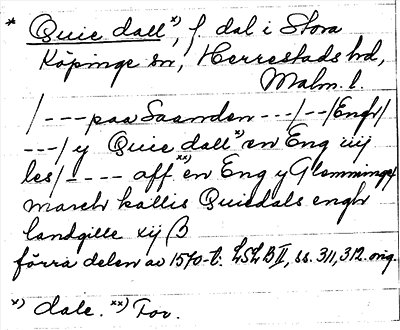 * Quie dall x), f. dal i Stora
Köpinge sn, Herrestads hd,
Malm. l.
/---paa Saanden---/--/Engh/
---/ y Quie dall x) en Eng iiij
les/---- aff xx) en Eng y Glemminge/
march kallis Quiedals engh
landgille xij β
förra delen av 1570-t. LSLB II, ss. 311, 312. orig.
x) dale. xx) For.